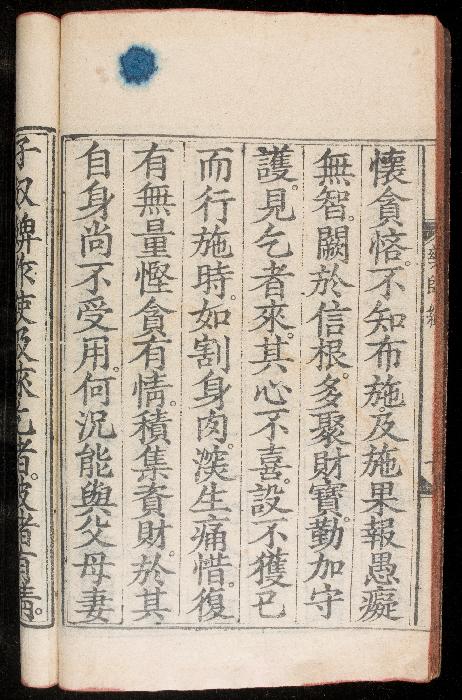 懷貪悋。不知布施及施果報愚癡
無智。闕於信根。多聚財寶。勤加守
護。見乞者來。其心不喜。設不獲已
而行施時。如割身肉。深生痛惜。復
有無量慳貪有情。積集資財。於其
自身尚不受用。何況能與父母妻
子奴婢作使及來乞者。彼諸有情。
藥師經